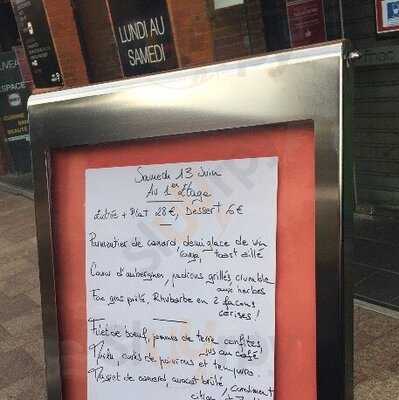 LUNDI AU
SAMEDI
ESPACE
BEAUTÉ
Samedi 13 Juin
Au 1er Etage
Entrée + Plat 28€, Dessert 6€
Parmentier de canard, demi glace de vin
rouge, toast aillé
Cœur d'aubergines, padrons grillés, crumble
aux herbes
Foie gras poêlé, Rhubarbe en 2 façons
cerises!
Filet de boeuf, pommes de terre confites
jus au café
de poivrons et tempura.
de canard avocat brûlé, condiment